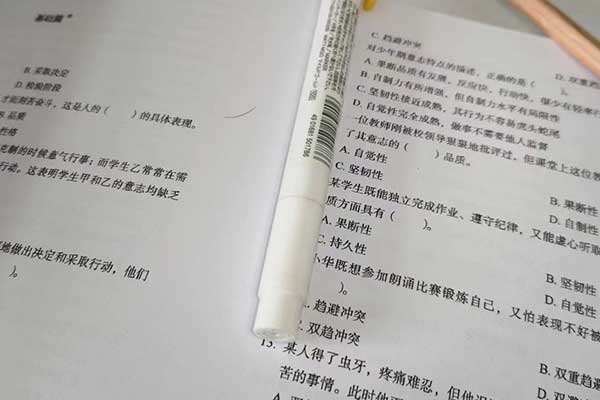 基础篇
B. 采取决定
D. 检验阶段
才能刻苦奋斗，这是人的（ ）的具体表现。
B. 品质
性格
克制的时候意气行事；而学生乙常常在需
行动。这表明学生甲和乙的意志均缺乏
地做出决定和采取行动，他们
）。
C. 趋避冲突
D. 双重趋
对少年期意志特点的描述，正确的是（ ）。
A. 果断品质有发展，反应快，行动快，很少有轻率行
B. 自制力有所增强，但自制力水平有局限性
C. 坚韧性接近成熟，其行为不容易虎头蛇尾
D. 自觉性完全成熟，做事不需要他人监督
一位教师刚被校领导狠狠地批评过，但课堂上这位教
了其意志的（ ）品质。
A. 自觉性
B. 果断性
C. 坚韧性
D. 自制性
某学生既能独立完成作业、遵守纪律，又能虚心听取
质方面具有（ ）。
A. 果断性
B. 坚韧性
C. 持久性
D. 自觉性
小华既想参加朗诵比赛锻炼自己，又怕表现不好被
）。
趋避冲突
B. 双重趋避
双趋冲突
D. 双避
13. 某人得了虫牙，疼痛难忍，但他
苦的事情。此时他